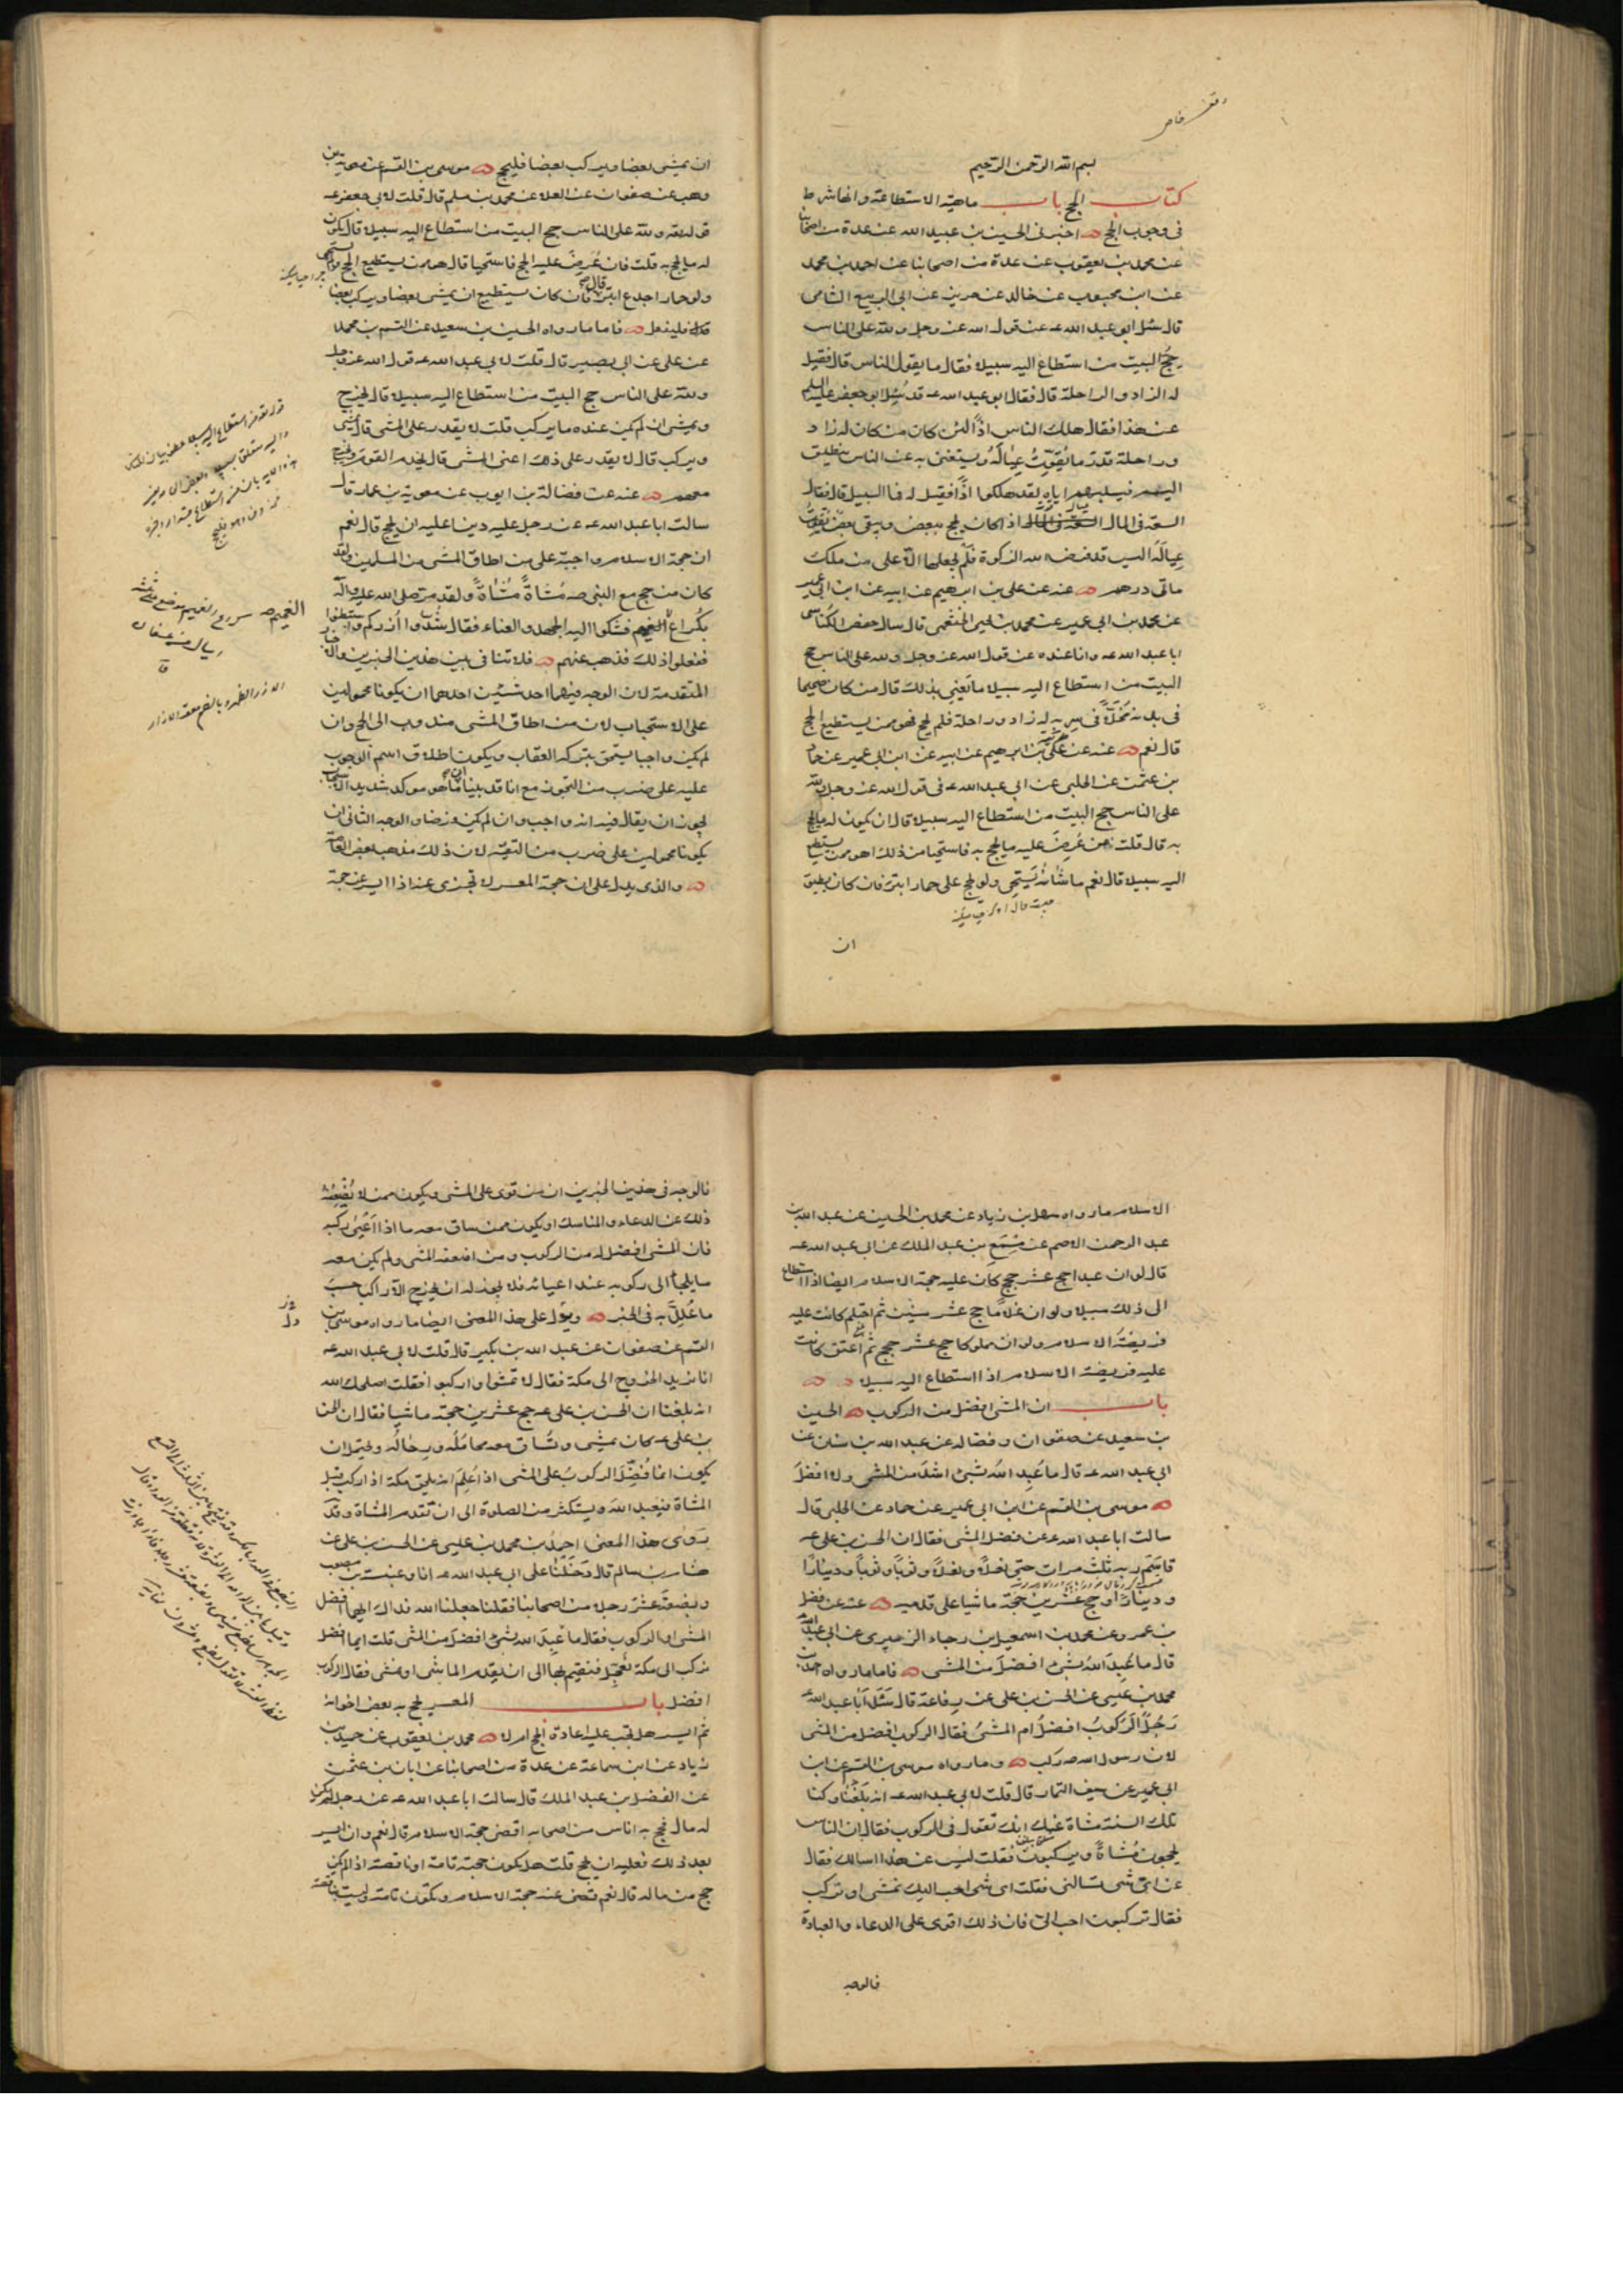 بسم الله الرحمن الرحيم
كتاب الحج باب ماهية الاستطاعة وانها شرط
فى وجوب الحج اخبرنى الحسين بن عبيد الله عن عدة من اصحابنا
عن محمد بن يعقوب عن عدة من اصحابنا عن احمد بن محمد
عن ابن محبوب عن خالد عن جرير عن ابى الربيع الشامى
قال سئل ابو عبد الله عه عن قول الله عز وجل ولله على الناس
حج البيت من استطاع اليه سبيلا فقال ما يقول الناس قال فقيل
له الزاد والراحلة قال فقال ابو عبد الله عه قد سُئل ابو جعفر عليه السلم
عن هذا فقال هلك الناس اذاً لئن كان من كان له زاد
وراحلة قدر ما يُقوِّتُ عيالَهُ ويستغنى به عن الناس ينطلق
اليهم فيسلبهم اياه لقد هلكوا اذاً فقيل له فما السبيل قال فقال
السعة فى المال اذا كان يحج ببعض ويبقى بعض يقوت
عيالَه اليس قد فرض الله الزكوة فلم يجعلها الّا على من ملك
مأتى درهم عنه عن على بن ابرهيم عن ابيه عن ابن ابى عمير
عن محمد بن يحيى الخثعمى قال سال حفص الكناسى
ابا عبد الله عه وانا عنده عن قول الله عز وجل ولله على الناس حج
البيت من استطاع اليه سبيلا ما يَعنِى بذلك قال من كان صحيحا
فى بدنه مُخَلًّى فى سِربه له زاد وراحلة فلم يحج فهو ممن يستطيع الحج
قال نعم عنه عن على بن ابرهيم عن ابيه عن ابن ابى عمير عن حماد
بن عثمن عن الحلبى عن ابى عبد الله عه فى قول الله عز وجل ولله
على الناس حج البيت من استطاع اليه سبيلا قال ان يكون له ما يحج
به قال قلت من عُرِضَ عليه ما يحج به فاستحيا من ذلك اهو ممن يستطيع
اليه سبيلا قال نعم ما شانه يَستحى ولو يحج على حمار ابتر فان كان يطيق
ان
ان يمشى بعضا ويركب بعضا فليحج موسى بن القسم عن معوية بن
وهب عن صفوان عن العلا عن محمد بن مسلم قال قلت لابى جعفر عه
قوله تعه ولله على الناس حج البيت من استطاع اليه سبيلا قال يكون
له ما يحج به قلت فان عُرِضَ عليه الحج فاستحيا قال هو ممن يستطيع الحج ولم يستحى
ولو حمار اجدع ابتر قال فان كان يستطيع ان يمشى بعضا ويركب بعضا
فليفعل فاما ما رواه الحسين بن سعيد عن القسم بن محمد
عن على عن ابى بصير قال قلت لابى عبد الله عه قول الله عز وجل
ولله على الناس حج البيت من استطاع اليه سبيلا قال يخرج
ويمشى ان لم يكن عنده ما يركب قلت لا يقدر على المشى قال يمشى
ويركب قال لا يقدر على ذلك اعنى المشى قال يخدم القوم ويخرج
معهم عنه عن فضالة بن ايوب عن معوية بن عمار قال
سالت ابا عبد الله عه عن رجل عليه دين اعليه ان يحج قال نعم
ان حجة الاسلام واجبة على من اطاق المشى من المسلمين ولقد
كان من حج مع النبى صه مُشاةً مُشاةً ولقد مر صلى الله عليه وآله
بكُراع الغميم فشكوا اليه الجهد والعناء فقال شُدوا اُزركم واستبطنوا
ففعلوا ذلك فذهب عنهم فلا تنافى بين هذين الخبرين والاخبار
المتقدمة لان الوجه فيهما احد شيئين احدهما ان يكونا محمولين
على الاستحباب لان من اطاق المشى مندوب الى الحج وان
لم يكن واجبا يستحق بتركه العقاب ويكون اطلاق اسم الوجوب
عليه على ضرب من التجوز مع انا قد بينا ان ما هو موكد شديد الاستحباب
يجوز ان يقال فيه انه واجب وان لم يكن فرضا والوجه الثانى ان
يكونا محمولين على ضرب من التقية لان ذلك مذهب بعض العامة
والذى يدل على ان حجة المعسر لا تجزى عنه اذا ايسر عن حجة
الاسلام ما رواه سهل بن زياد عن محمد بن الحسين عن عبد الله بن
عبد الرحمن الاصم عن مِسمَع بن عبد الملك عن ابى عبد الله عه
قال لو ان عبدا حج عشر حجج كان عليه حجة الاسلام ايضا اذا استطاع
الى ذلك سبيلا ولو ان غلاما حج عشر سنين ثم احتلم كانت عليه
فريضة الاسلام ولو ان مملوكا حج عشر حجج ثم اعتق كانت
عليه فريضة الاسلام اذا استطاع اليه سبيلا
باب ان المشى افضل من الركوب الحسين
بن سعيد عن صفوان وفضاله عن عبد الله بن سنان عن
ابى عبد الله عه قال ما عُبِد الله بشئ اشد من المشى ولا افضل
موسى بن القسم عن ابن ابى عمير عن حماد عن الحلبى قال
سالت ابا عبد الله عه عن فضل المشى فقال ان الحسن بن على عه
قاسَمَ ربه ثلث مرات حتى نعلاً ونعلاً وثوباً وثوباً وديناراً
وديناراً وحج عشرين حجة ماشيا على قدميه عنه عن فضل
بن عمرو عن محمد بن اسمعيل بن رجاء الزبيرى عن ابى عبد الله
قال ما عُبِدَ اللهُ بشئ افضلَ من المشى فاما ما رواه احمد بن
محمد بن عيسى عن الحسن بن على عن رِفاعة قال سَئَلَ ابا عبد الله عه
رَجُلٌ الرُكوبُ افضلُ ام المشىُ فقال الركوب افضل من المشى
لان رسول الله صه ركب وما رواه موسى بن القسم عن ابن
ابى عمير عن سيف التمار قال قلت لابى عبد الله عه انه بَلَغَنا وكنا
تلك السنة مشاة عنك انك تقول فى الركوب فقال ان الناس
يحجون مُشاةً ويركبون فقلت ليس عن هذا اسالك فقال
عن اى شى تسالنى فقلت اى شى احب اليك نمشى او نركب
فقال تركبون احب الىّ فان ذلك اقوى على الدعاء والعبادة
فالوجه
فالوجه فى هذين الخبرين ان من قوى على المشى ويكون ممن لا يُضعِفُه
ذلك عن الدعاء والمناسك او يكون ممن ساق معه ما اذا اَعيَى ركبه
فان المشى افضل له من الركوب ومن اضعفه المشى ولم يكن معه
ما يلجأ الى ركوبه عند اعيائه فلا يجوز له ان يخرج الا راكبا حسب
ما عُلِّل به فى الخبر ويدل على هذا المعنى ايضا ما رواه موسى بن
القسم عن صفوان عن عبد الله بن بكير قال قلت لابى عبد الله عه
انا نريد الخروج الى مكة فقال لا تمشوا واركبوا فقلت اصلحك الله
انه بلغنا ان الحسن بن على عه حج عشرين حجة ماشيا فقال ان الحسن
بن على عه كان يمشى وتُساق معه محاملُه ورِحالُه ويحتمل ان
يكون انما فُضِّلَ الركوبُ على المشى اذا عُلِمَ انه يلحق مكة اذا ركب قبل
المشاة فيَعبُد اللهَ ويستكثر من الصلوة الى ان تقدم المشاة وقد
رَوى هذا المعنى احمدُ بن محمد بن عيسى عن الحسن بن على عن
هشام بن سالم قال دَخَلنا على ابى عبد الله عه انا وعنبسة بن مصعب
وبضعة عشر رجلا من اصحابنا فقلنا جعلنا الله فداك ايهما افضل
المشى او الركوب فقال ما عُبِدَ الله بشئ افضلَ من المشى قلت ايما افضل
نركب الى مكة نُعَجِّل فنقيم بها الى ان يقدم الماشى او نمشى فقال الركوب
افضل باب المعسر يحج به بعض اخوانه
ثم ايسر هل تجب عليه اعادة الحج ام لا محمد بن يعقوب عن حميد بن
زياد عن ابن سماعة عن عدة من اصحابنا عن ابان بن عثمن
عن الفضل بن عبد الملك قال سالت ابا عبد الله عه عن رجل لم يكن
له مال فحج به اناس من اصحابه اقضى حجة الاسلام قال نعم وان ايسر
بعد ذلك فعليه ان يحج قلت هل يكون حجته تامة او ناقصة اذا لم يكن
حج من ماله قال نعم قضى عنه حجة الاسلام وتكون تامة وليست بناقصة